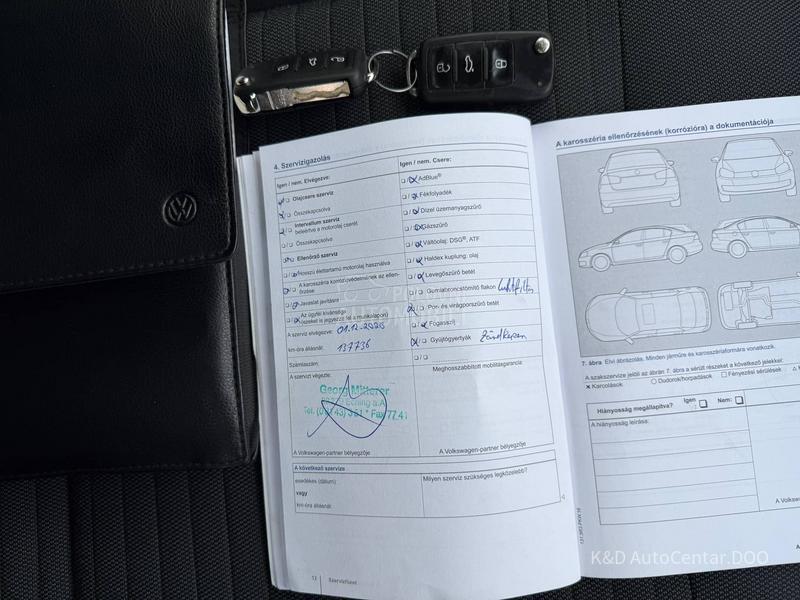 4. Szervizigazolás
Igen / nem. Elvégezve:
Olajcsere szerviz
Összekapcsolva
Intervallum szerviz
beleértve a motorolaj cserét
Összekapcsolva
Ellenőrző szerviz
Hosszú élettartamú motorolaj használva
A karosszéria korrózióvédelmének az ellen-
őrzése
Javaslat javításra
Az ügyfél kívánsága
(ezeket is jegyezze fel a munkalapon)
A szerviz elvégezve: 01.12.2025
km-óra állásnál: 137736
Számlaszám:
A szervizt végezte:
Georg Mitterer
Eching a.A.
Tel.
Fax 77 41
A Volkswagen-partner bélyegzője
Igen / nem. Csere:
AdBlue®
Fékfolyadék
Dízel üzemanyagszűrő
Gázszűrő
Váltóolaj: DSG®, ATF
Haldex kuplung: olaj
Levegőszűrő betét
Gumiabroncstömítő flakon
Por- és virágporszűrő betét
Fogasszíj
Gyújtógyertyák
Meghosszabbított mobilitásgarancia:
A Volkswagen-partner bélyegzője
A következő szerviz
esedékes (dátum)
vagy
km-óra állásnál:
Milyen szerviz szükséges legközelebb?
12
Szervizfüzet
A karosszéria ellenőrzésének (korrózióra) a dokumentációja
7. ábra Elvi ábrázolás. Minden járműre és karosszériaformára vonatkozik.
A szakszervize jelöli az ábrán 7. ábra a sérült részeket a következő jelekkel:
× Karcolások
○ Dudorok/horpadások
□ Fényezési sérülések
Hiányosság megállapítva?
Igen
Nem:
A hiányosság leírása:
A Volksw
K&D AutoCentar.DOO